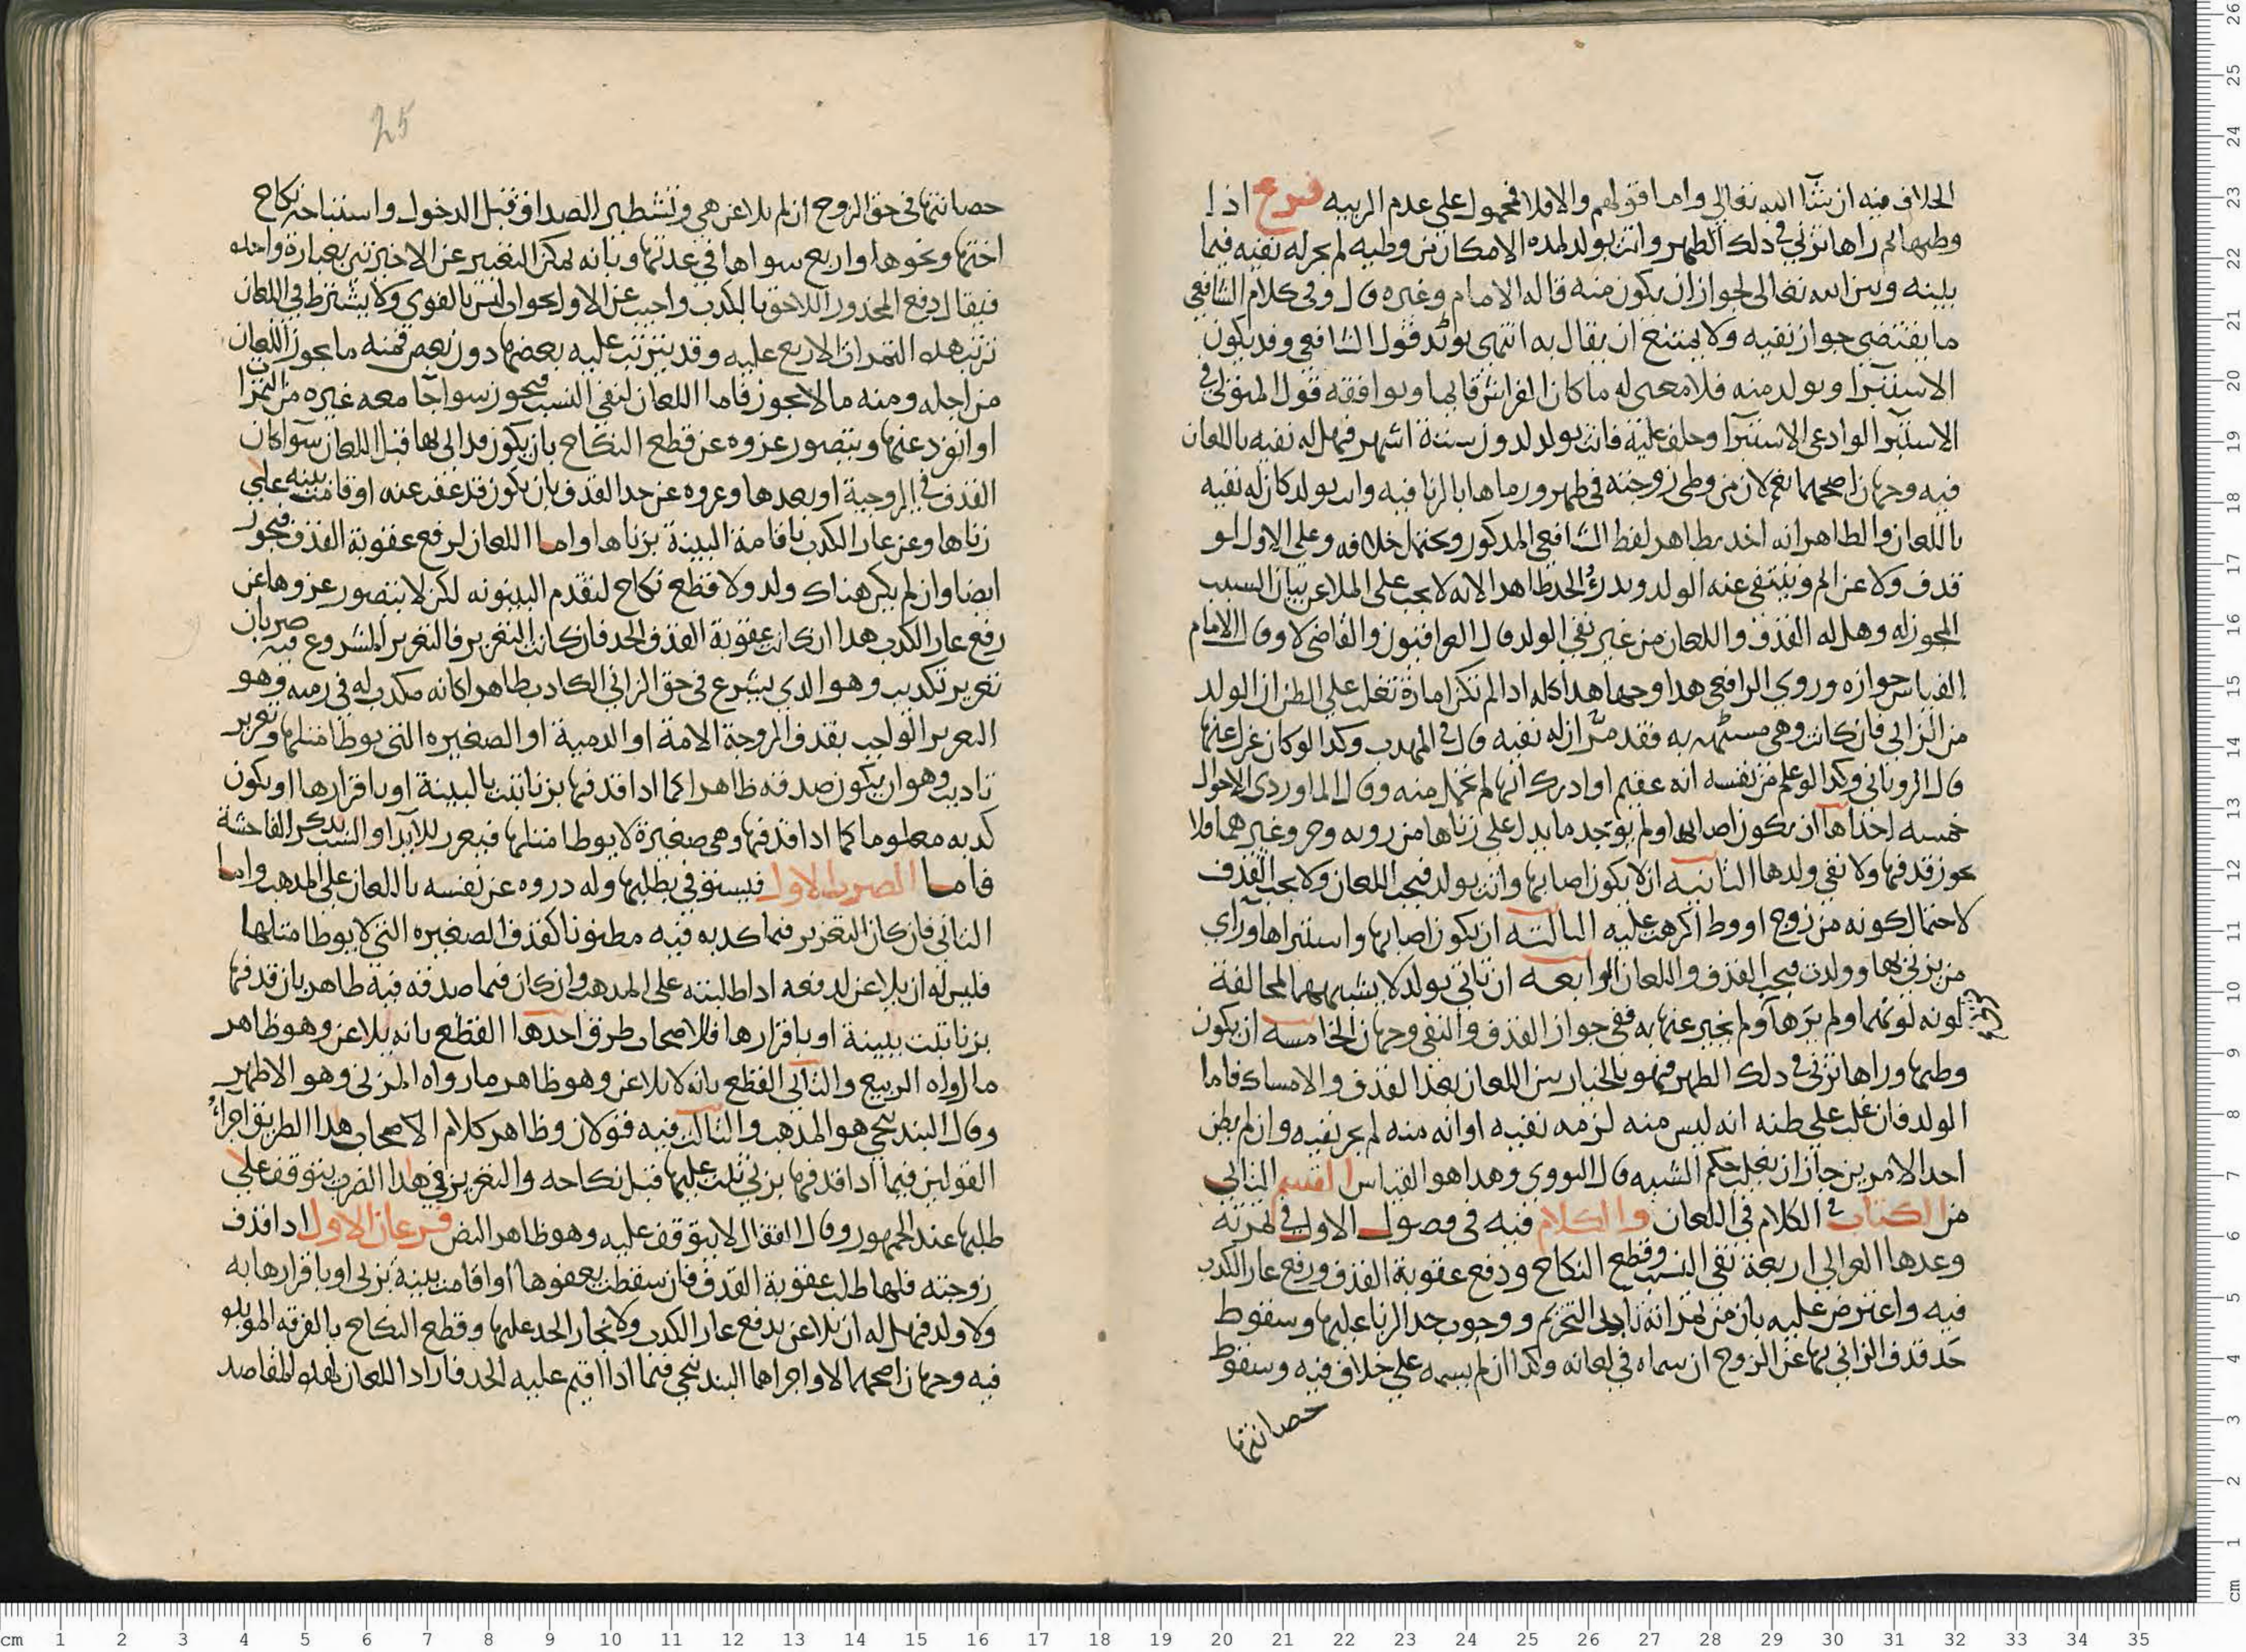 الخلاف فيه ان شا الله تعالى واما قولهم والا فلا فمحمول على عدم الريبه فرع اذا
وطيها ثم راها تزني في ذلك الطهر واتت بولد لمده الامكان من وطيه لم يجز له نفيه فيما
بينه وبين الله تعالى لجواز ان يكون منه قاله الامام وغيره قال وفي كلام الشافعي
ما يقتضي جواز نفيه ولا يمتنع ان يقال به انتهى يويد قول الشافعي وقد يكون
الاستبرا ويولد منه فلا معنى له ما كان الفراش قايما ويوافقه قول المتولي في
الاستبرا لو ادعى الاستبرا وحلف عليه فاتت بولد لدون ستة اشهر فهل له نفيه باللعان
فيه وجهان اصحهما نعم لان من وطي زوجته في طهر ورماها بالزنا فيه واتت بولد كان له نفيه
باللعان والظاهر انه اخد بظاهر لفظ الشافعي المدكور ويحتمل خلافه وعلى الاول لو
قدف ولاعن لم وينتفي عنه الولد ويدرأ الحد ظاهرا لانه لا يجب على الملاعن بيان السبب
المجوز له وهل له القذف واللعان من غير نفي الولد قال العراقيون والقاضي لا وقال الامام
القياس جوازه وروي الرافعي هدا وجها هدا كله ادا لم تكن امارة تغلب على الظن ان الولد
من الزاني فان كانت وهي مستهمه به فقد مر ان له نفيه قال في المهدب وكدا لو كان عزل عنها
قال الروياني وكدا لو علم من نفسه انه عقيم او ادرك انها لم تحمل منه وقال الماوردي الاحوال
خمسه احداها ان يكون اصابها ولم يوجد ما يدل على زناها من رويه وخبر وغيرهما فلا
يجوز قدفها ولا نفي ولدها الثانيه ان لا يكون اصابها واتت بولد فيجب اللعان ولا يجب القذف
لاحتمال كونه من زوج او وطا اكرهت عليه الثالثه ان يكون اصابها واستبراها وراي
من يزني بها وولدت فيجب القذف واللعان الرابعه ان تاتي بولد لا يشبههما لمخالفة
لونه لونهما ولم يرها ولم يخبر عنها به ففي جواز القذف والنفي وجهان الخامسه ان يكون
وطيها وراها تزني في دلك الطهر فهو بالخيار بين اللعان بعد القذف والامساك فاما
الولد فان غلب على ظنه انه ليس منه لزمه نفيه او انه منه لم يجز نفيه وان لم يظن
احد الامرين جاز ان يغلب حكم الشبه قال النووي وهدا هو القياس القسم الثاني
من الكتاب في الكلام في اللعان والكلام فيه في فصول الاول في ثمرته
وعدها الغزالي اربعة نفي النسب وقطع النكاح ودفع عقوبة القذف ورفع عار الكدب
فيه واعترض عليه بان من ثمراته تابد التحريم ووجوب حد الزنا عليها وسقوط
حد قدف الزاني بها عن الزوج ان سماه في لعانه وكدا ان لم يسمه على خلاف فيه وسقوط
حصانتها
25
حصانتها في حق الزوج ان لم تلاعن هي وتشطير الصداق قبل الدخول واستباحة نكاح
اختها ونحوها واربع سواها في عدتها وبانه يمكن التعبير عن الاخيرتين بعبارة واحده
فيقال دفع المحذور اللاحق بالكدب واجيب عن الاول بجواب ليس بالقوي ولا يشترط في اللعان
ترتب هده الثمرات الاربع عليه وقد يترتب عليه بعضها دون بعض فمنه ما يجوز اللعان
من اجله ومنه ما لا يجوز فاما اللعان لنفي النسب فيجوز سوا جامعه غيره من الثمرات
او انفرد عنها ويتصور عروه عن قطع النكاح بان يكون قد ابانها قبل اللعان سوا كان
القدف في الزوجية او بعدها وعروه عن حد القذف بان يكون قد عفت عنه او قامت بينه على
زناها وعن عار الكدب باقامة البينة بزناها واما اللعان لرفع عقوبة القذف فيجوز
ايضا وان لم يكن هناك ولد ولا قطع نكاح لتقدم البينونه لكن لا يتصور عروها عن
رفع عار الكدب هدا ان كانت عقوبة القذف الحد فان كانت التعزير فالتعزير المشروع فيه ضربان
تعزير تكديب وهو الدي يشرع في حق الزاني الكادب ظاهرا كانه مكدب له في رميه وهو
التعزير الواجب بقدف الزوجة الامة او الدمية او الصغيره التي يوطا مثلها وتعزير
تاديب وهو ان يكون صدقه ظاهرا كما ادا قدفها بزنا ثبت بالبينة او باقرارها او يكون
كدبه معلوما كما ادا قدفها وهي صغيرة لا يوطا مثلها فيعزر للايدا والسب بدكر الفاحشة
فاما الضرب الاول فيستوفي بطلبها وله دروه عن نفسه باللعان على المدهب واما
الثاني فان كان التعزير فيما كدبه فيه مظنونا كقذف الصغيره التي لا يوطا مثلها
فليس له ان يلاعن لدفعه ادا طالبته على المدهب وان كان فيما صدقه فيه ظاهر بان قدفها
بزنا ثبت ببينة او باقرارها فللاصحاب طرق احدها القطع بانه يلاعن وهو ظاهر
ما رواه الربيع والثاني القطع بانه لا يلاعن وهو ظاهر ما رواه المزني وهو الاظهر
وقال البندنيجي هو المذهب والثالث فيه قولان وظاهر كلام الاصحاب هدا الطريق اجراء
القولين فيما ادا قدفها بزني ثبت عليها قبل نكاحه والتعزير في هدا الضرب يتوقف على
طلبها عند الجمهور وقال القفال لا يتوقف عليه وهو ظاهر النص فرعان الاول ادا قذف
زوجته فلها طلب عقوبة القدف فان سقطت بعفوها او اقامت بينة بزني او باقرارها به
ولا ولد فهل له ان يلاعن لدفع عار الكدب ولايجاب الحد عليها وقطع النكاح بالفرقه الموبده
فيه وجهان اصحهما لا واجراها البندنيجي فيما ادا اقيم عليه الحد فاراد اللعان لهده المقاصد